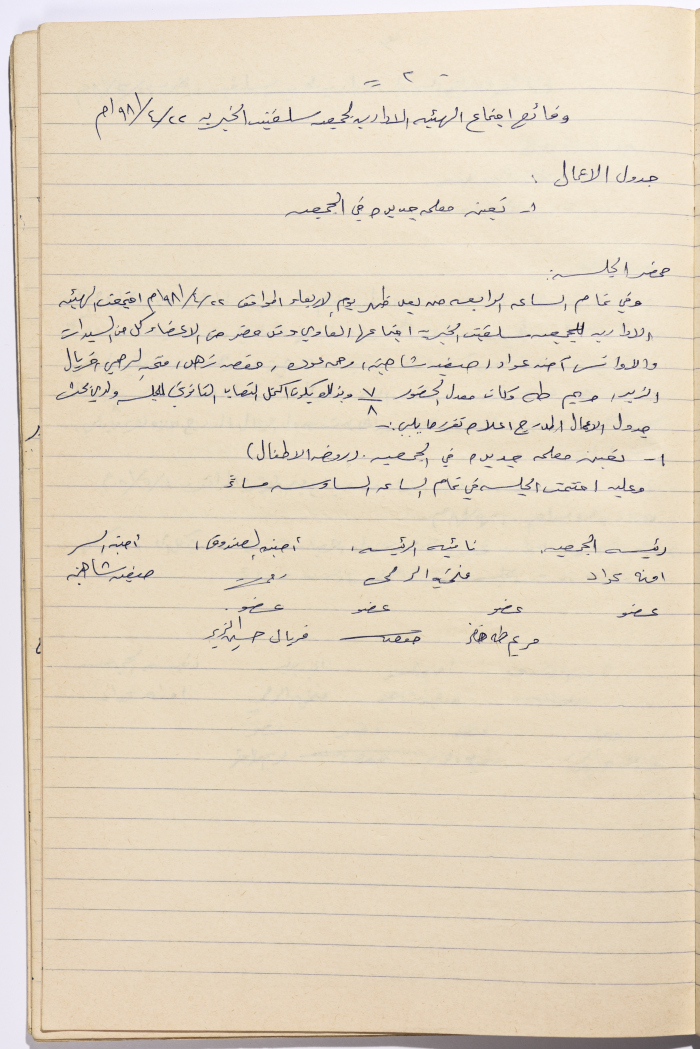 - ٢ -
وقائع اجتماع الهيئه الاداريه لجمعيه سلفيت الخيريه ٢٢/٤/١٩٨١م
جدول الاعمال :
١- تعين معلمه جديده في الجمعيه
محضر الجلسه :
وفي تمام الساعه الرابعه من بعد ظهر يوم الاربعاء الموافق ٢٢/٤/١٩٨١م اجتمعت الهيئه
الاداريه لجمعيه سلفيت الخيريه اجتماعها العادي وقد حضر من الاعضاء كل من السيدات
والاوانس آمنه عواد، صفيه شاهين، رحمه عوده، حفصه ، فتحيه الرمحي، فريال
الزير، مريم طه وكان معدل الحضور ٧/٨ وبذلك يكون اكتمل النصاب القانوني للجلسه ولدى بحث
جدول الاعمال المدرج اعلاه تقرر ما يلي :-
١- تعين معلمه جديده في الجمعيه . (روضه الاطفال)
وعليه اختتمت الجلسه في تمام الساعه السادسه مساءً
رئيسه الجمعيه نائبه الرئيسه : أمينه الصندوق : أمينه السر
امنه عواد فتحيه الرمحي صفيه شاهين
عضو عضو عضو عضو .
مريم طه حفصه فريال حسين الزير